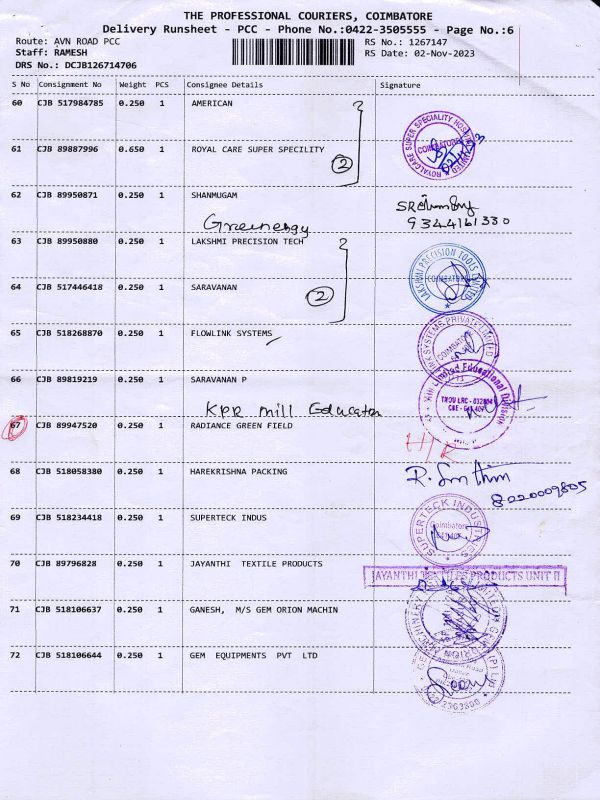 THE PROFESSIONAL COURIERS, COIMBATORE
Delivery Runsheet - PCC - Phone No.:0422-3505555 - Page No.:6
Route: AVN ROAD PCC RS No.: 1267147
Staff: RAMESH RS Date: 02-Nov-2023
DRS No.: DCJB126714706
S No Consignment No Weight PCS Consignee Details Signature
60 CJB 517984785 0.250 1 AMERICAN
61 CJB 89887996 0.650 1 ROYAL CARE SUPER SPECILITY
2
62 CJB 89950871 0.250 1 SHANMUGAM
Greenergy 9344161330
63 CJB 89950880 0.250 1 LAKSHMI PRECISION TECH
LAKSHMI PRECISION TOOLS LIMITED
COIMBATORE
64 CJB 517446418 0.250 1 SARAVANAN
2
65 CJB 518268870 0.250 1 FLOWLINK SYSTEMS
66 CJB 89819219 0.250 1 SARAVANAN P
KPR mill Educator
67 CJB 89947520 0.250 1 RADIANCE GREEN FIELD
68 CJB 518058380 0.250 1 HAREKRISHNA PACKING
8220009805
69 CJB 518234418 0.250 1 SUPERTECK INDUS
SUPERTECK INDUSTRIES
Coimbatore
70 CJB 89796828 0.250 1 JAYANTHI TEXTILE PRODUCTS
JAYANTHI TEXTILES PRODUCTS UNIT II
71 CJB 518106637 0.250 1 GANESH, M/S GEM ORION MACHIN
72 CJB 518106644 0.250 1 GEM EQUIPMENTS PVT LTD